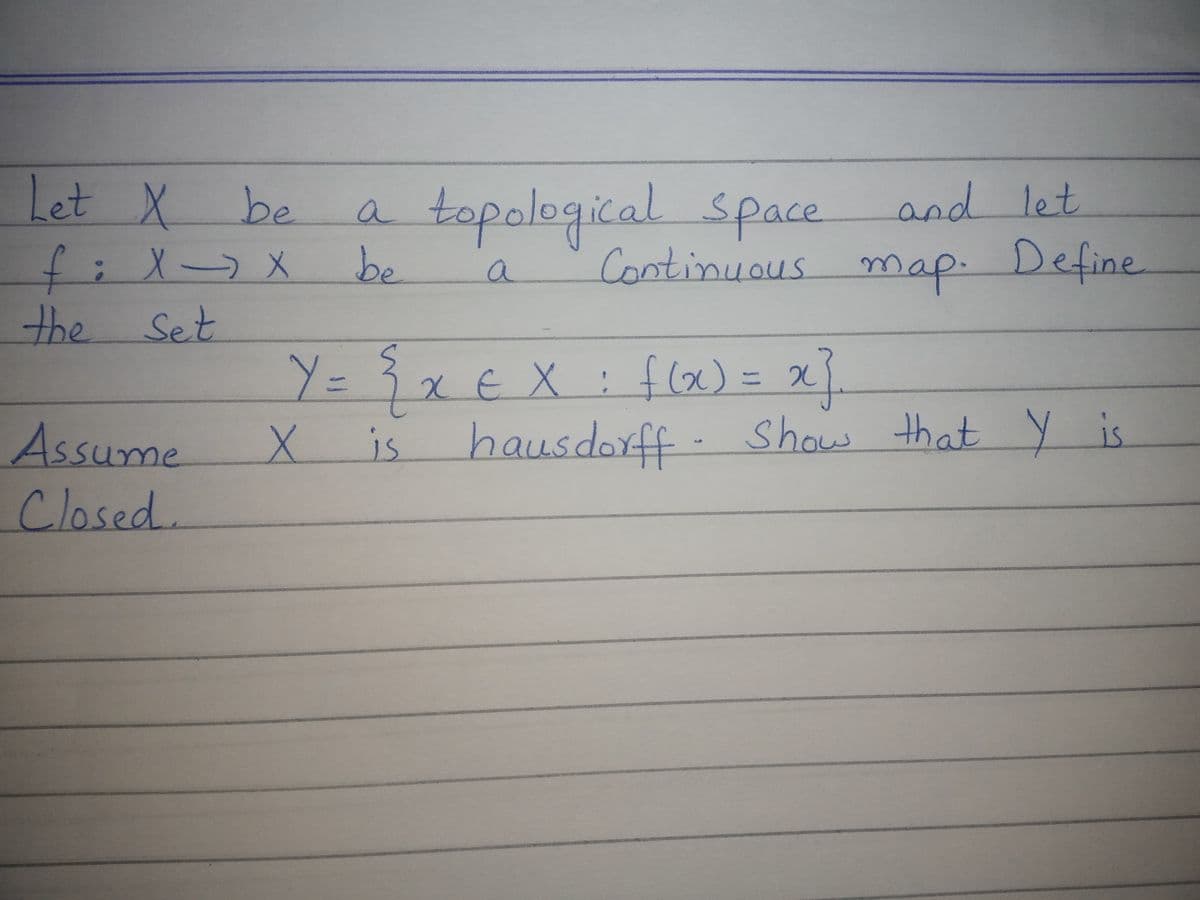 Let X be a topological space and let
f : X → X be a Continuous map. Define
the Set
Y = { x ∈ X : f(x) = x}.
Assume X is hausdorff. Show that Y is
Closed.